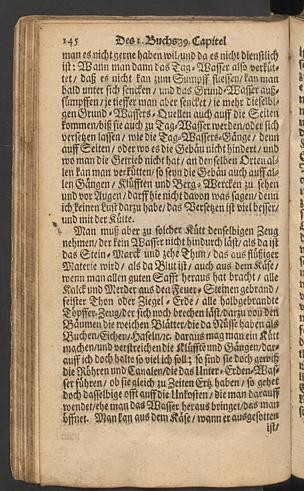 145 Des 1. Buchs 39. Capitel
man es nicht gerne haben wil/und da es nicht dienstlich
ist: Wann man dann das Tag-Wasser also verküt-
tet / daß es nicht kan zum Sumpff fliessen/ kan man
bald unter sich sencken / und das Grund-Wasser auß-
sümpffen/ je tieffer man aber sencket / je mehr dieselbi-
gen Grund-Wassers-Quellen auch auff die Seiten
kommen/ biß sie auch zu Tag-Wasser werden/oder sich
versetzen lassen / wie die Tag-Wassers-Gänge / denn
auff Seiten / oder wo es die Gebäu nicht hindert / und
wo man die Getrieb nicht hat / an denselben Orten al-
len kan man verkütten / so seyn die Gebäu auch auff al-
len Gängen / Klüfften und Berg-Wercken zu sehen
und vor Augen / darff hie nicht davon was sagen / denn
ich keinen Lust darzu habe / das Versetzen ist viel besser/
und mit der Kütte.
Man muß aber zu solcher Kütt denselbigen Zeug
nehmen / der kein Wasser nicht hindurch läst / als da ist
das Stein-Marck und zehe Thun / das aus flüßiger
Materie wird / als da Blut ist / auch aus dem Käse/
wenn man allen guten Safft heraus hat bracht / alle
Kalck und Merder aus den Feuer-Steinen gebrand/
feister Thon oder Ziegel-Erde / alle halbgebrandte
Töpffer-Zeug/der sich noch brechen läst/darzu von den
Bäumen die weichen Blätter/die da Nüsse haben als
Buchen/Eichen/Haseln/ꝛc. daraus mag man ein Kütt
machen/und verstreich en die Klüffte und Gängen/dar-
auff ich doch halte so viel ich soll; so sind sie doch gewiß
die Röhren und Canalen/die das Unter-Erden-Was-
ser führen / ob sie gleich zu Zeiten Ertz haben / so gehet
doch dasselbige offt auff die Unkosten / die man darauff
wendet/ehe man das Wasser heraus bringet/das man
öffnet. Man kan aus dem Käse / wann er ausgesotten
ist/